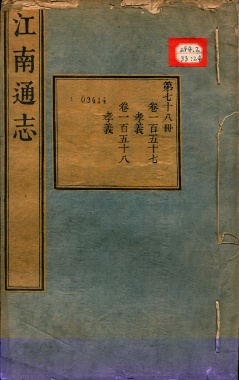 江南通志
第七十八冊
卷一百五十七
孝義
卷一百五十八
孝義
03414